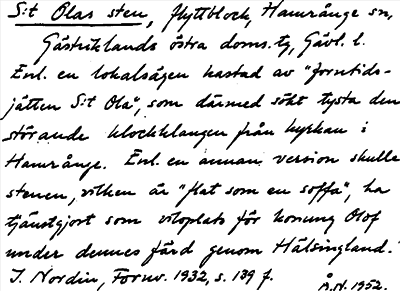 S:t Olas sten, flyttblock, Hamrånge sn,
Gästriklands östra doms.tg, Gävl. l.
Enl. en lokalsägen kastad av "forntids-
jätten S:t Ola", som därmed sökt tysta den
störande klockklangen från kyrkan i
Hamrånge. Enl. en annan version skulle
stenen, vilken är "flat som en soffa", ha
tjänstgjort som viloplats för konung Olof
under dennes färd genom Hälsingland.
J. Nordin, Fornv. 1932, s. 139 f.
Å.N. 1952.